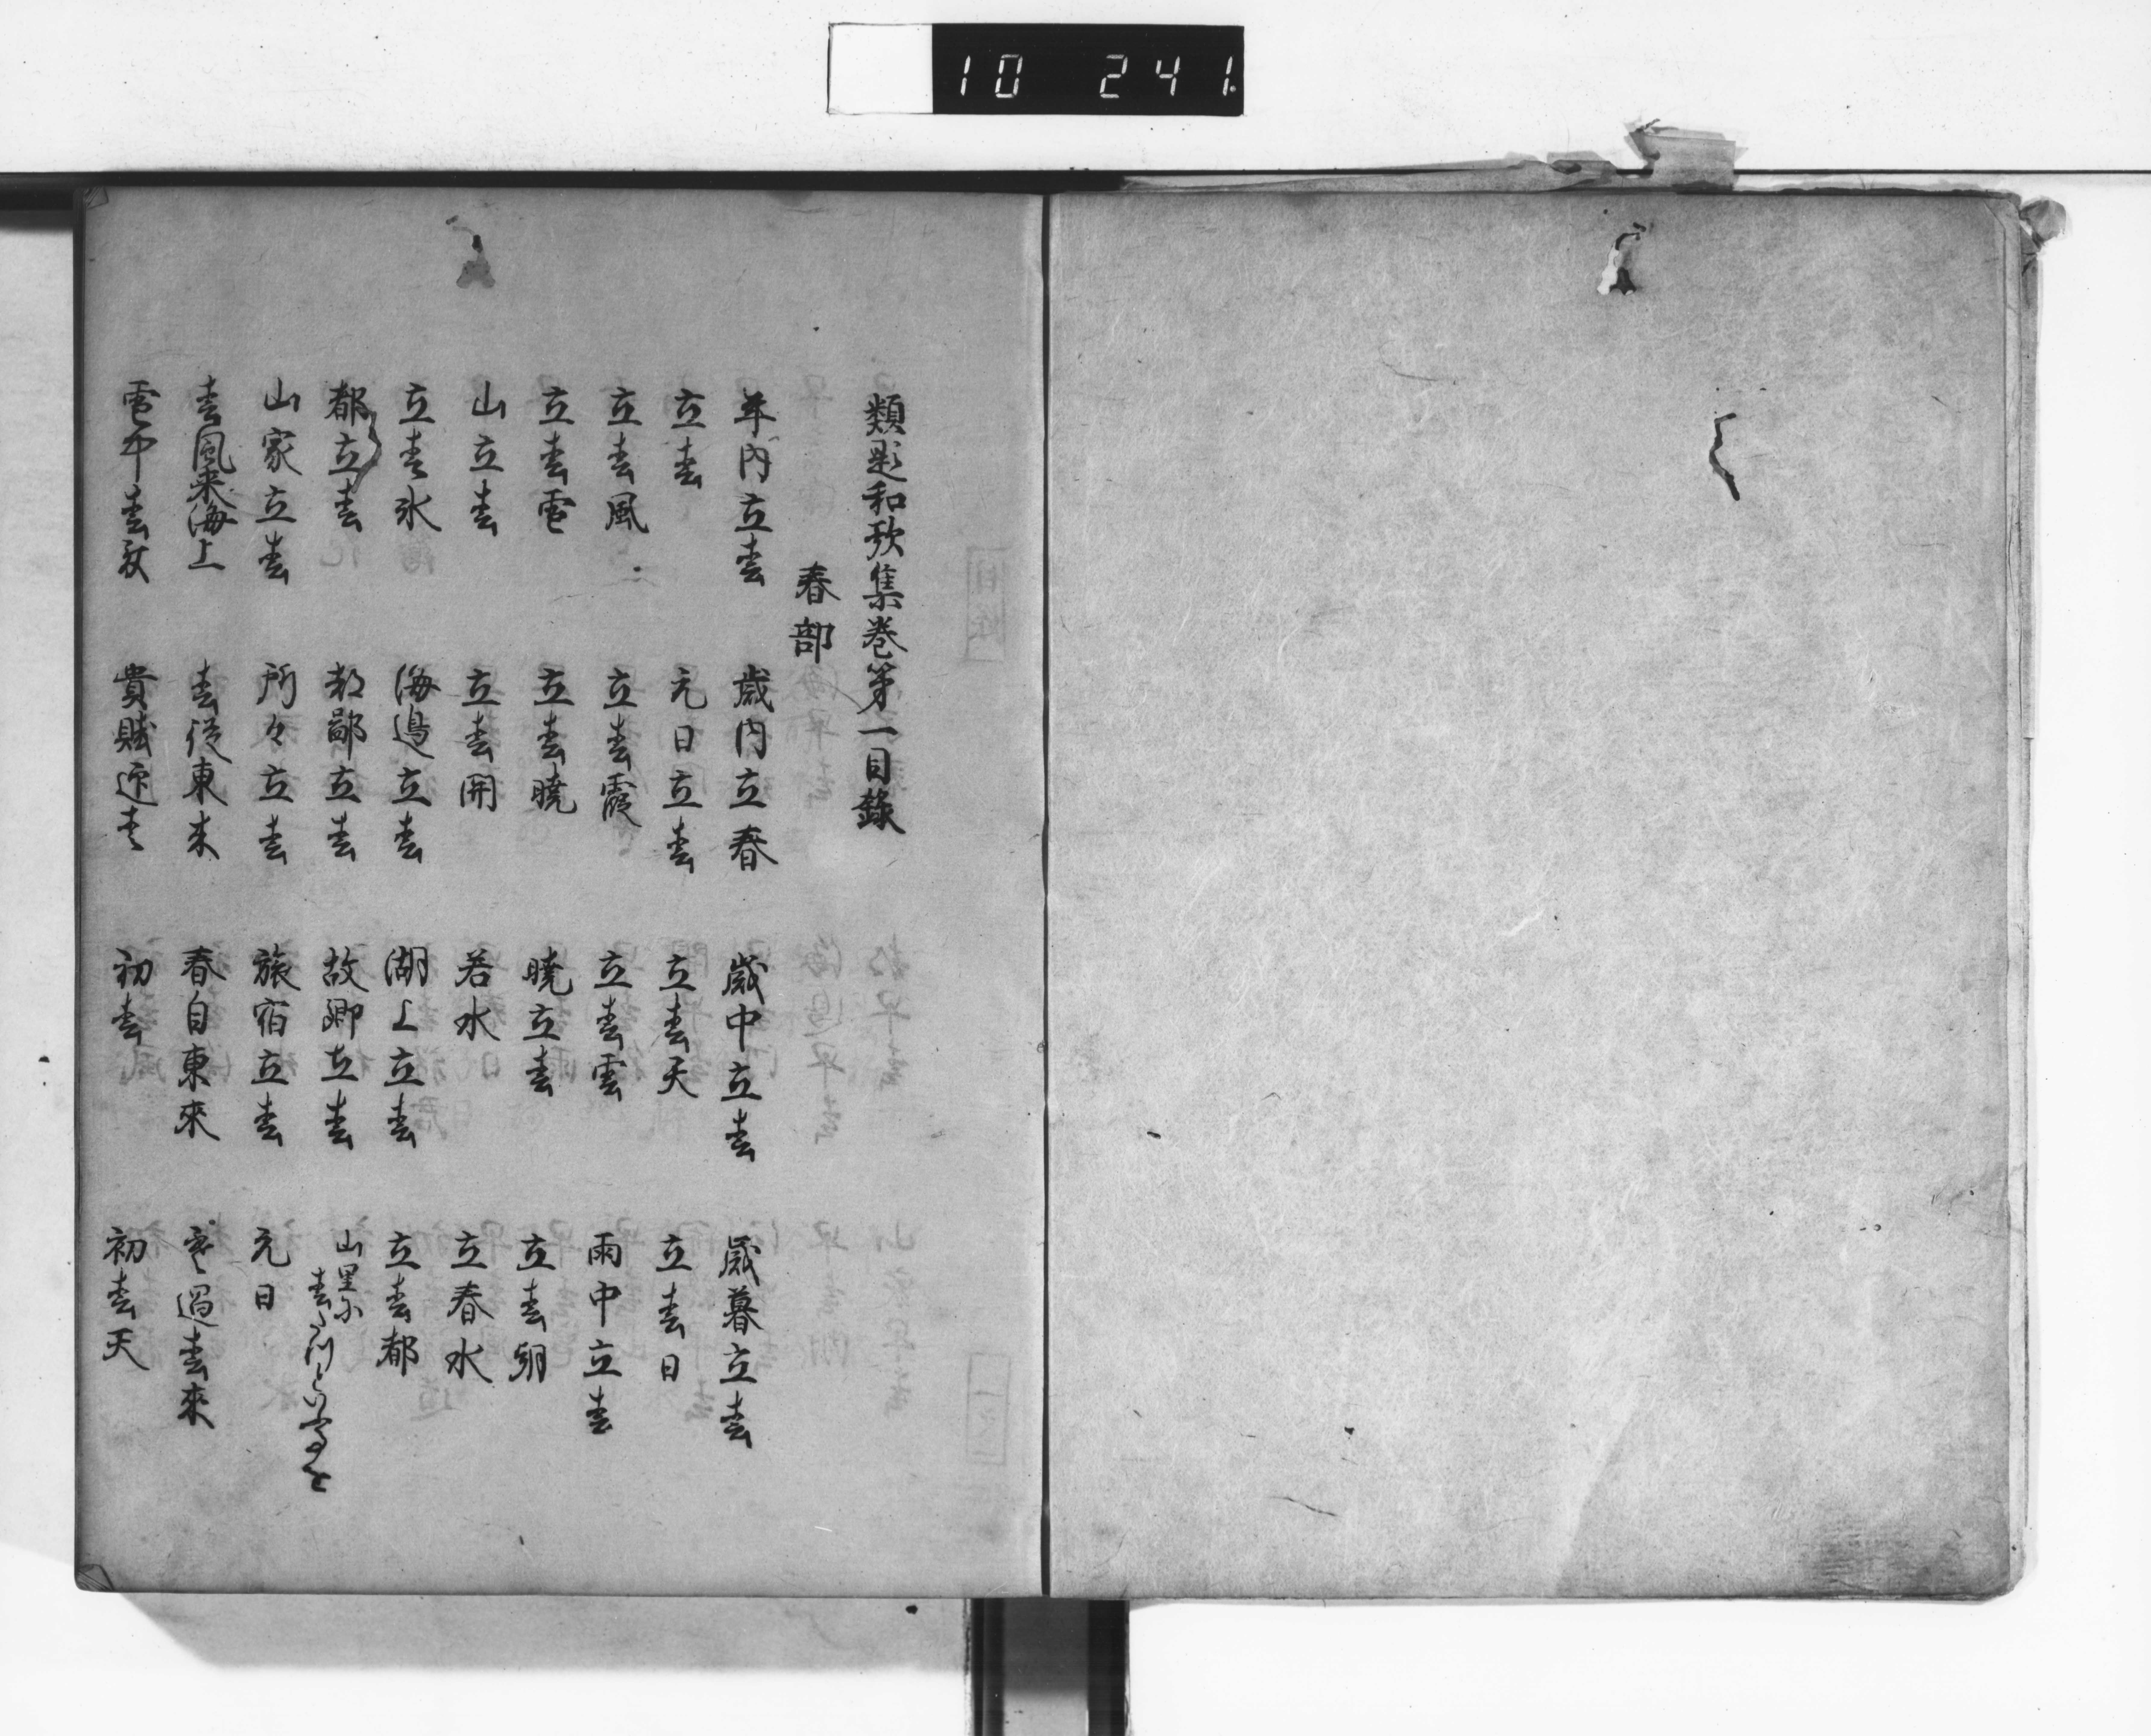 10 241
類題和歌集巻第一目録
春部
年内立春 歳内立春 歳中立春 歳暮立春
立春 元日立春 立春天 立春日
立春風 立春霞 立春雲 雨中立春
立春雪 立春暁 暁立春 立春朝
山立春 立春関 若水 立春水
立春氷 海邊立春 湖上立春 立春都
都立春 都鄙立春 故郷立春 山里に春たつといふ事を
山家立春 所々立春 旅宿立春 元日
春風来海上 春従東来 春自東來 寒過春來
雪中春 貴賤迎春 初春 初春天